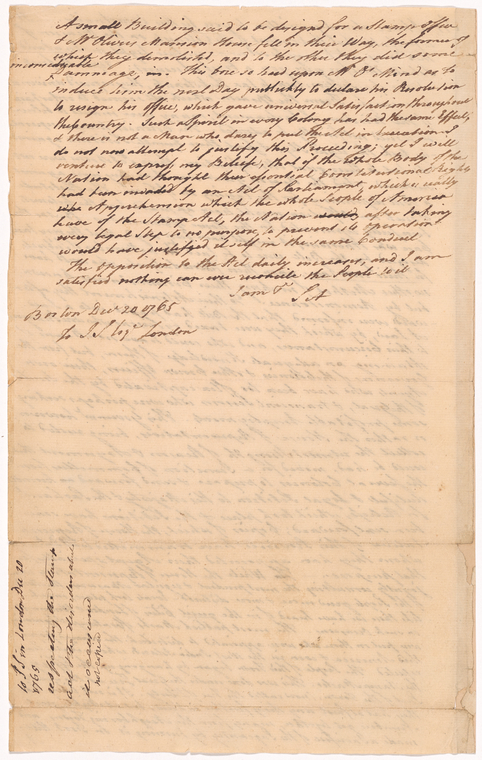 A small Building said to be designed for a Stamp office
& Mr Olivers Mansion House fell in their Way, the former of
which they demolished, and to the other they did some
inconsiderable
Damage. This one so hard upon Mr O's Mind as to
induce him the next Day publickly to declare his Resolution
to resign his Office, which gave universal Satisfaction throughout
the Country. Such a Spirit in every Colony has had the same Effect,
& there is not a Man who dares to put the Act in execution. I
do not now attempt to justify this Proceeding; yet I will
venture to express my Beliefe, that if the whole Body of the
Nation had thought their essential Constitutional Rights
had been invaded by an Act of Parliament, which is really
the Apprehension which the whole People of America
have of the Stamp Act, the Nation would after taking
every legal Step to no purpose, to prevent its operation
would have justified itself in the same Conduct
The Opposition to the Act daily increases, and I am
satisfied nothing can ever reconcile the People to it
I am &c
S A
Boston Decr 20 1765
To J S Esqr London
to J S in London Dec 20
1765
respecting the Stamp
Act & the disorders
it occasioned